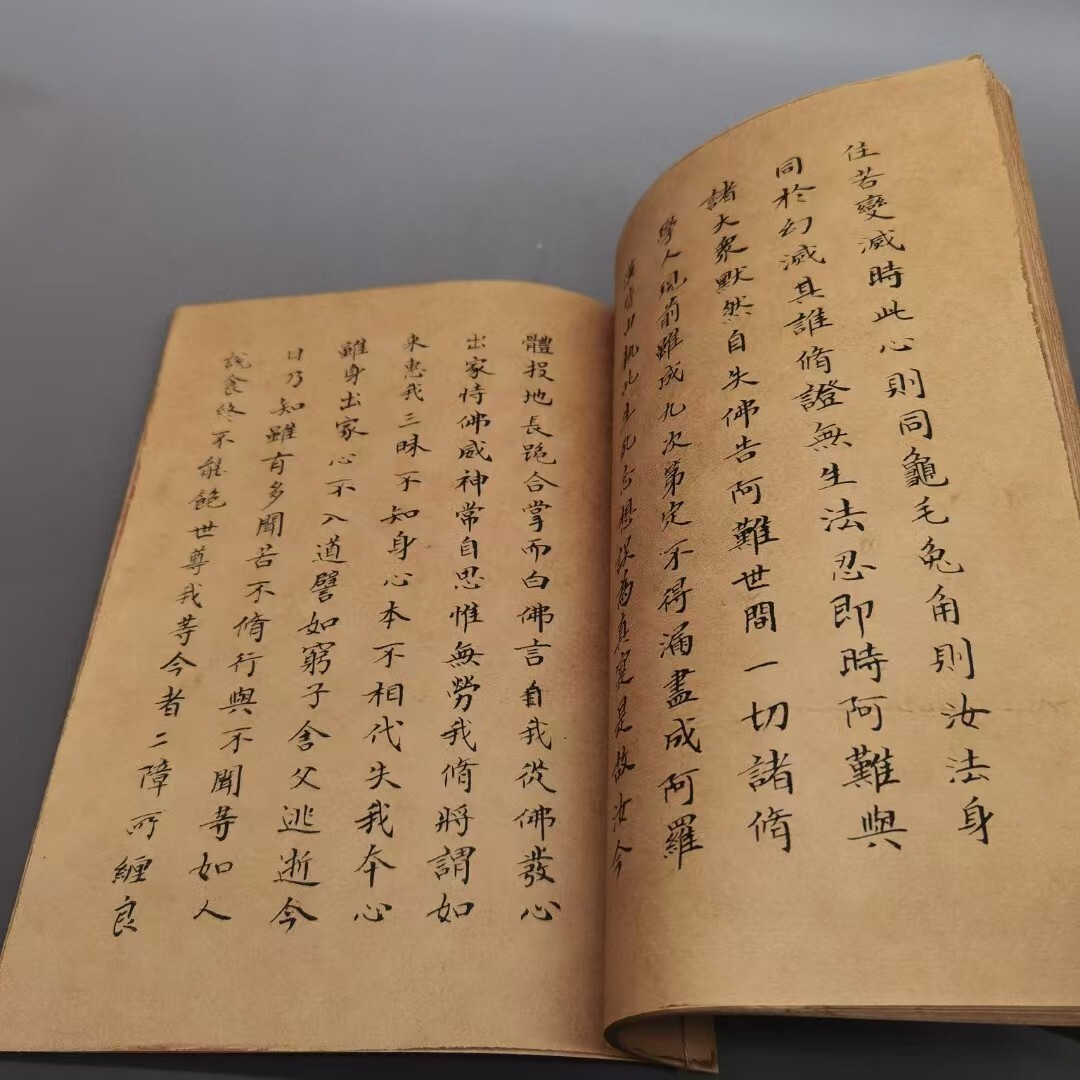 住若變滅時此心則同龜毛兔角則汝法身
同於幻滅其誰脩證無生法忍即時阿難與
諸大衆默然自失佛告阿難世間一切諸脩
學人現前雖成九次第定不得漏盡成阿羅
漢皆由執此生死妄想誤為真實是故汝今
體投地長跪合掌而白佛言自我從佛發心
出家恃佛威神常自思惟無勞我脩將謂如
來惠我三昧不知身心本不相代失我本心
雖身出家心不入道譬如窮子舍父逃逝今
日乃知雖有多聞若不脩行與不聞等如人
說食終不能飽世尊我等今者二障所纏良